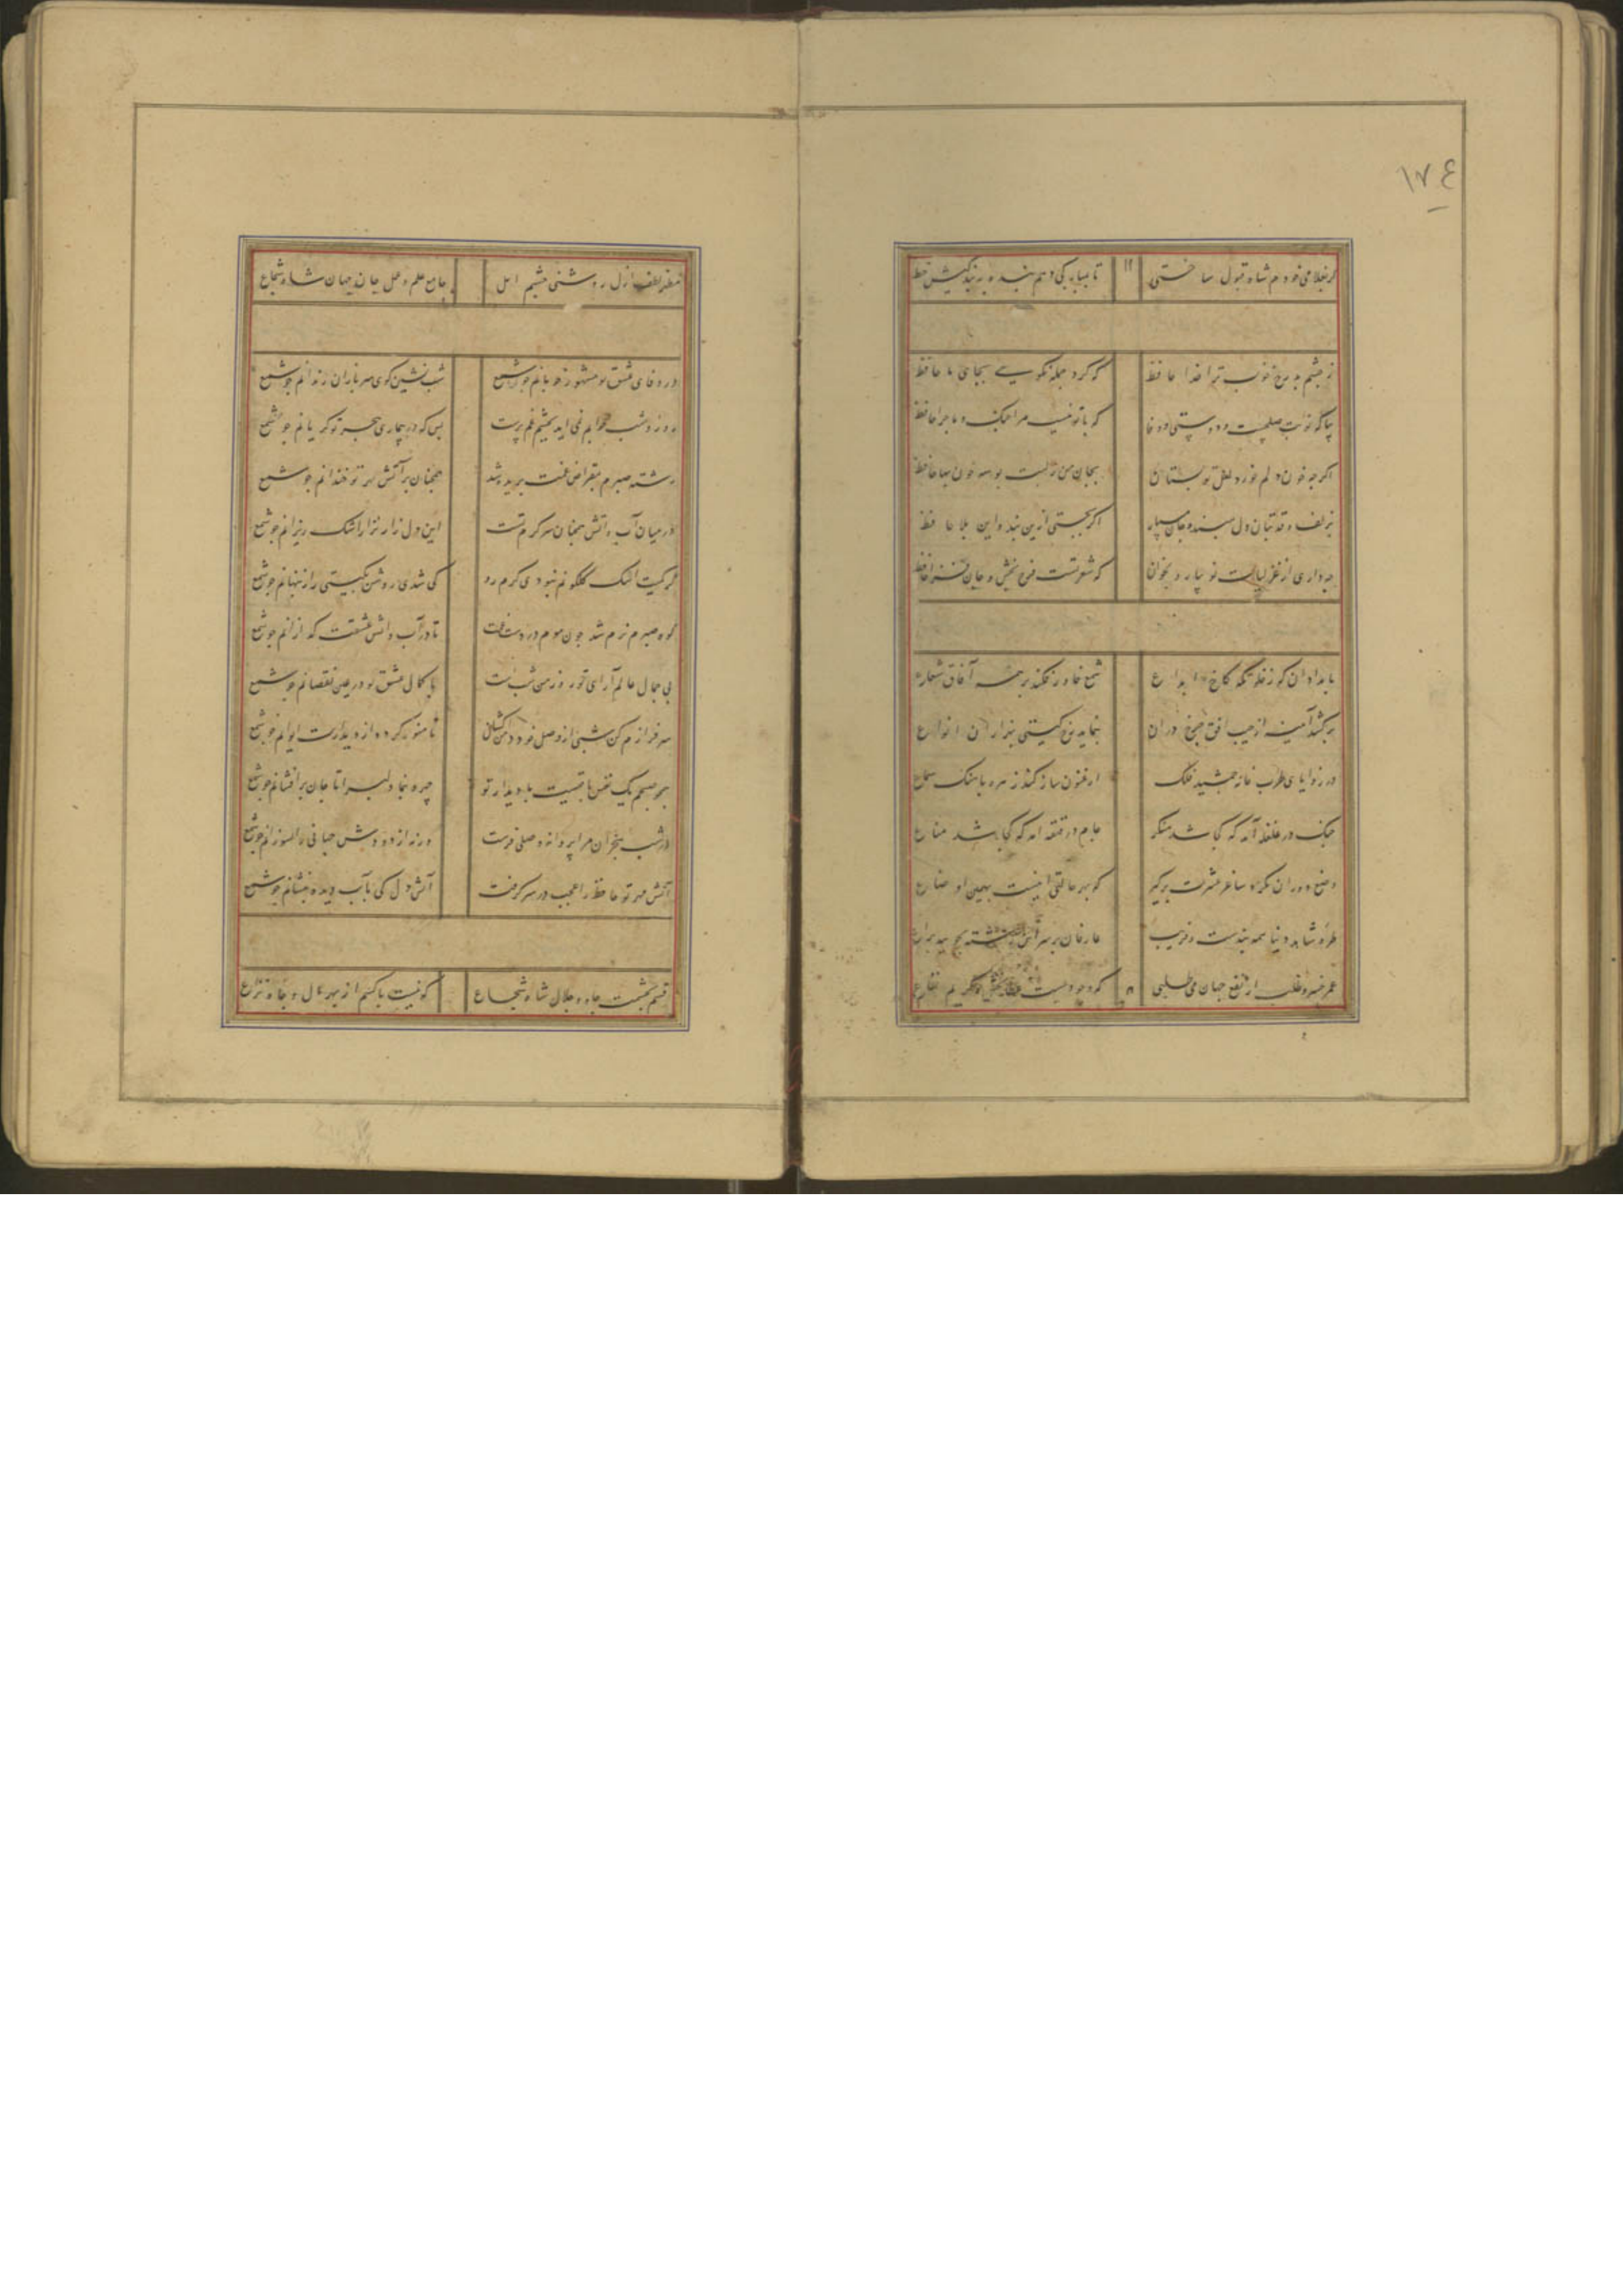 ١٧٤
گر بغلامی خودم شاه قبول ساختی تا بمبارکی دهم بنده به بندگیش خط
ز چشم بد رخ خوب ترا خدا حافظ که کرد جمله نکویی بجای ما حافظ
بیا که نوبت صلحست و دوستی و وفا که با تو نیست مرا جنگ و ماجرا حافظ
اگر چه خون دلم خورد لعل تو بستان بجان من ز لبت بوسه خون بها حافظ
بزلف و قد بتان دل مبند و جان مسپار اگر بجستی ازین بند و این بلا حافظ
چه داری از غزلیات نو بیار و بخوان که شعر تست فرح بخش و جان فزا حافظ
بامدادان که ز خلوتگه کاخ ابداع شمع خاور فکند بر همه آفاق شعاع
بر کشد آینه از جیب افق چرخ و دران بنماید رخ گیتی بهزاران انواع
در زوایای طرب خانه جمشید فلک ارغنون ساز کند زهره باهنگ سماع
چنگ در غلغله آمد که کجا شد منکر جام در قهقهه آمد که کجا شد مناع
وضع دوران نگر و ساغر عشرت برگیر که بهر حالتی اینست بهین اوضاع
طره شاهد دنیا همه بندست و فریب عارفان بر سر این رشته نجویند نزاع
عمر خسرو طلب ار نفع جهان می طلبی که وجودیست عطا بخش و کریم نفاع
مظهر لطف ازل روشنی چشم امل جامع علم و عمل جان جهان شاه شجاع
در وفای عشق تو مشهور خوبانم چو شمع شب نشین کوی سربازان و رندانم چو شمع
روز و شب خوابم نمی آید بچشم غم پرست بس که در بیماری هجر تو گریانم چو شمع
رشته صبرم بمقراض غمت ببریده شد همچنان بر آتش مهر تو خندانم چو شمع
در میان آب و آتش همچنان سرگرم تست این دل زار نزار اشک ریزانم چو شمع
گر کمیت اشک گلگونم نبودی گرم رو کی شدی روشن بگیتی راز پنهانم چو شمع
کوه صبرم نرم شد چون موم در دست غمت تا در آب و آتش عشقت گدازانم چو شمع
بی جمال عالم آرای تو روزم چون شبست با کمال عشق تو در عین نقصانم چو شمع
سرفرازم کن شبی از وصل خود دامن کشان تا منور گردد از دیدارت ایوانم چو شمع
همچو صبحم یک نفس باقیست با دیدار تو چهره بنما دلبرا تا جان بر افشانم چو شمع
در شب هجران مرا پروانه وصلی فرست ورنه از دودش جهانی را بسوزانم چو شمع
آتش مهر تو حافظ را عجب در سر گرفت آتش دل کی بآب دیده بنشانم چو شمع
قسم بحشمت و جاه و جلال شاه شجاع که نیست با کسم از بهر مال و جاه نزاع